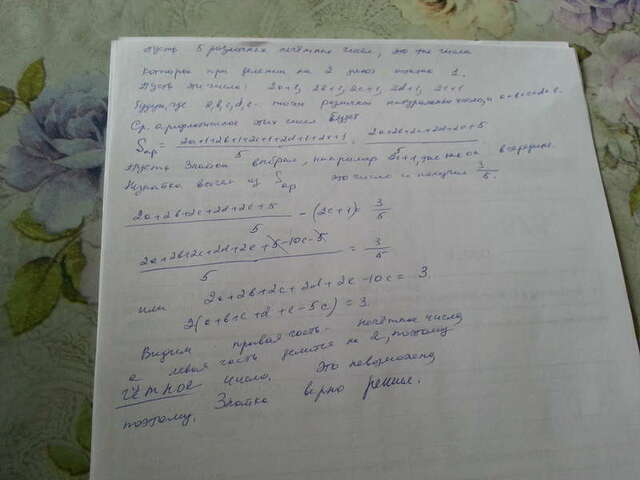 Пусть 5 различных нечётных чисел, это те числа
которые при делении на 2 дают остаток 1.
Пусть эти числа: 2a+1, 2b+1, 2c+1, 2d+1, 2e+1
будут, где a,b,c,d,e - такие различные натуральные числа, и a<b<c<d<e.
Ср. арифметическое этих чисел будет
Sср = (2a+1+2b+1+2c+1+2d+1+2e+1)/5 = (2a+2b+2c+2d+2e+5)/5
Пусть Знайка выбрал, например 2c+1, так как он в середине.
Незнайка вычел из Sср это число и получил 3/5.
(2a+2b+2c+2d+2e+5)/5 - (2c+1) = 3/5
(2a+2b+2c+2d+2e+5-10c-5)/5 = 3/5
или 2a+2b+2c+2d+2e-10c = 3.
2(a+b+c+d+e-5c) = 3.
Видим правая часть - нечётное число,
а левая часть делится на 2, поэтому
чётное число. Это невозможно
поэтому. Знайка верно решил.